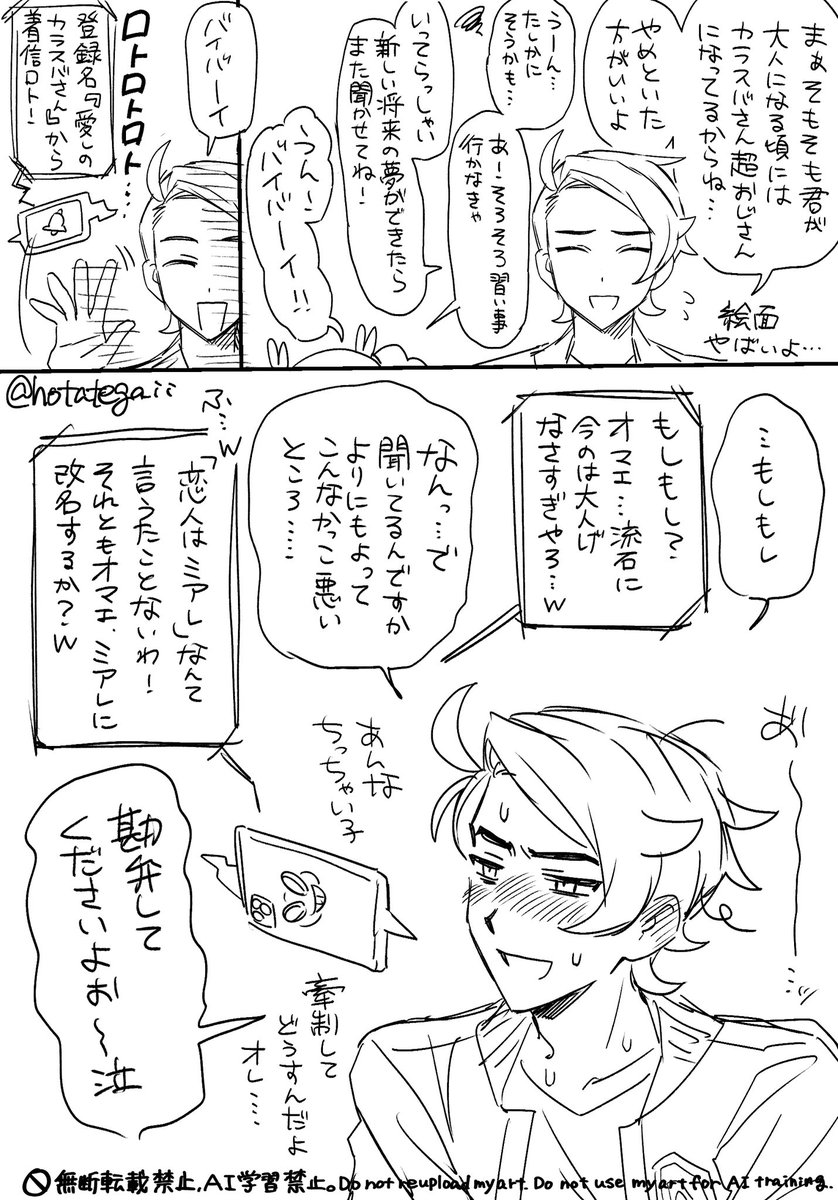 まぁそもそも君が
大人になる頃には
カラスバさん超おじさん
になってるからね…
やめといた
方がいいよ
絵面
やばいよ…
うーん…
たしかに
そうかも…
あー!そろそろ習い事
行かなきゃ
いってらっしゃい
新しい将来の夢ができたら
また聞かせてね!
うん!
バイバーイ!!
バイバーイ
ロトロトロト…
登録名『愛しの
カラスバさん』から
着信ロト!
@hotategaii
…もしもし
もしもし?
オマエ…流石に
今のは大人げ
なさすぎやろ…w
なんっ…で
聞いてるんですか
よりにもよって
こんなかっこ悪い
ところ……
ふ…w
「恋人はミアレ」なんて
言うたことないわ!
それともオマエ、ミアレに
改名するか?w
あ〜
あんな
ちっちゃい子
牽制して
どうすんだよ
オレ…
勘弁して
くださいよぉ〜泣
無断転載禁止、AI学習禁止。Do not reupload my art. Do not use my art for AI training.